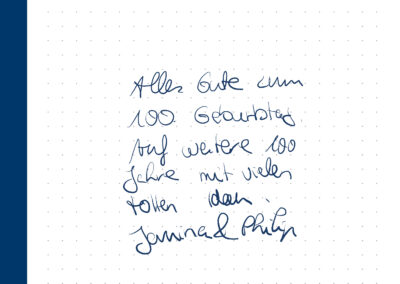 Alles Gute zum
100 Geburtstag.
Auf weitere 100
Jahre mit vielen
tollen Ideen.
Janina & Philip